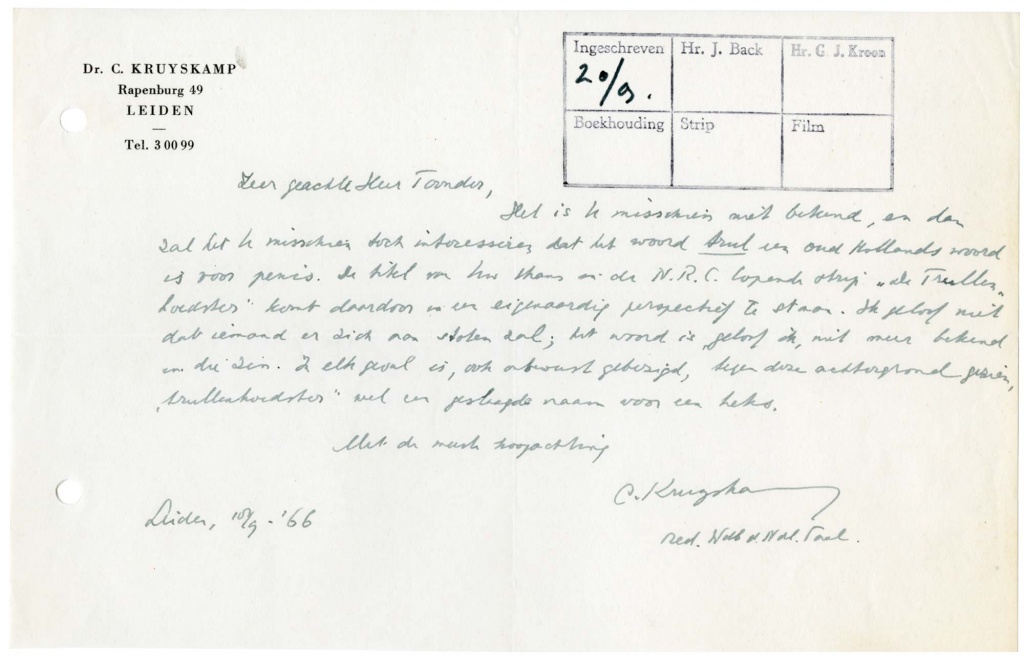 Dr. C. KRUYSKAMP
Rapenburg 49
LEIDEN
Tel. 3 00 99
Ingeschreven Hr. J. Back Hr. G J. Kroon
20/9.
Boekhouding Strip Film
Zeer geachte Heer Toonder,
Het is U misschien niet bekend, en dan
zal het U misschien toch interesseren dat het woord trul een oud Hollands woord
is voor penis. De titel van Uw thans in de N.R.C. lopende strip „de Trullen-
hoedster" komt daardoor in een eigenaardig perspectief te staan. Ik geloof niet
dat iemand er zich aan stoten zal; het woord is, geloof ik, niet meer bekend
in die zin. In elk geval is, ook onbewust gebezigd, tegen deze achtergrond gezien,
„trullenhoedster" wel een geslaagde naam voor een heks.
Met de meeste hoogachting
C. Kruyskamp
Leiden, 18/9 - '66
red. Wdb d. Ndl. Taal.